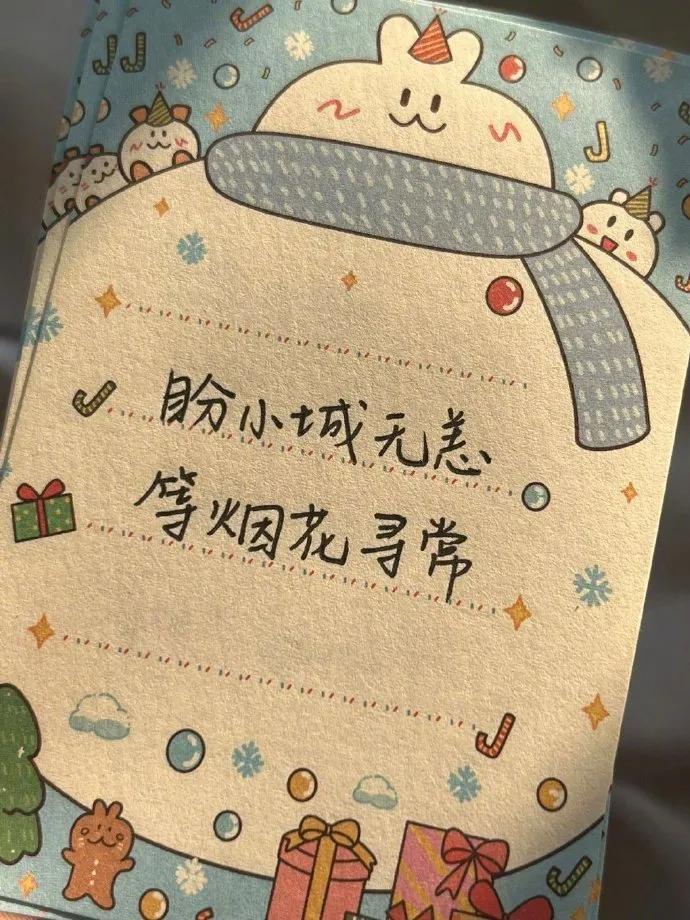 盼小城无恙
等烟花寻常